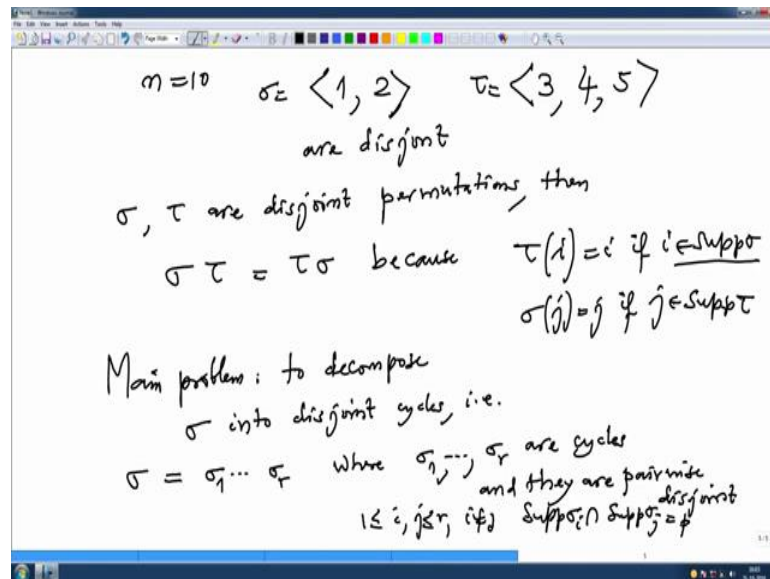 n=10 σ= ⟨1, 2⟩ τ= ⟨3, 4, 5⟩
are disjoint
σ, τ are disjoint permutations, then
σ τ = τσ because τ(i)=i if i∈Suppσ
σ(j)=j if j∈Suppτ
Main problem: to decompose
σ into disjoint cycles, i.e.
σ = σ₁ ⋯ σᵣ where σ₁, ⋯, σᵣ are cycles
and they are pairwise
disjoint
1≤ i, j≤r, i≠j Suppσᵢ ∩ Suppσⱼ = φ